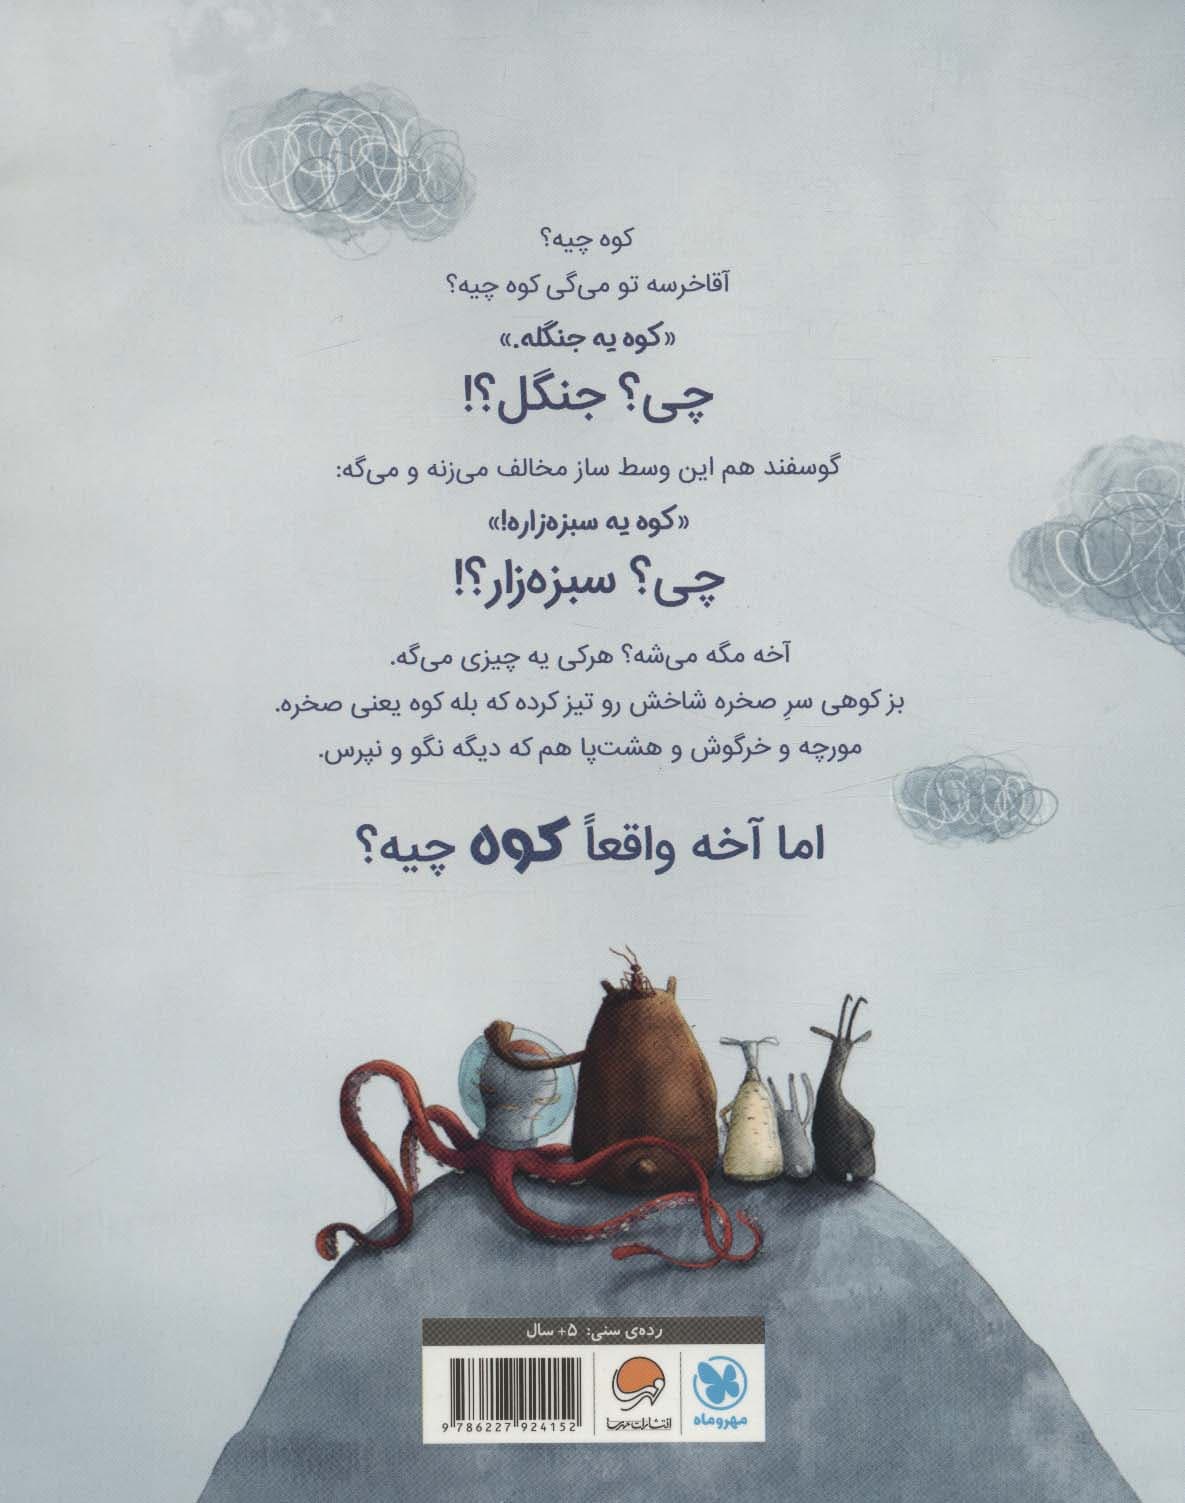 کوه چیه؟
آقاخرسه تو می‌گی کوه چیه؟
«کوه یه جنگله.»
چی؟ جنگل؟!
گوسفند هم این وسط ساز مخالف می‌زنه و می‌گه:
«کوه یه سبزه‌زاره!»
چی؟ سبزه‌زار؟!
آخه مگه می‌شه؟ هرکی یه چیزی می‌گه.
بز کوهی سرِ صخره شاخش رو تیز کرده که بله کوه یعنی صخره.
مورچه و خرگوش و هشت‌پا هم که دیگه نگو و نپرس.
اما آخه واقعاً کوه چیه؟
رده‌ی سنی: ۵+ سال
مهروماه
انتشارات مهرسا
9 786227 924152